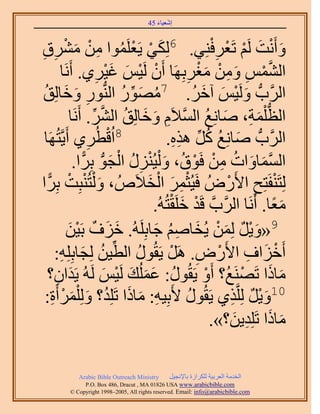 إشعياء 45
وَأَنْتَ لَمْ تَعْرِفْنِي. 6لِكَيْ يَعْلَمُوا مِنْ مَشْرِقِ
الشَّمْسِ وَمِنْ مَغْرِبِهَا أَنْ لَيْسَ غَيْرِي. أَنَا
الرَّبُّ وَلَيْسَ آخَرُ. 7مُصَوِّرُ النُّورِ وَخَالِقُ
الظُّلْمَةِ، صَانِعُ السَّلاَمِ وَخَالِقُ الشَّرِّ. أَنَا
الرَّبُّ صَانِعُ كُلِّ هذِهِ. 8اُقْطُرِي أَيَّتُهَا
السَّمَاوَاتُ مِنْ فَوْقُ، وَلْيُنْزِلُ الْجَوُّ بِرًّا.
لِتَنْفَتِحِ الأَرْضُ فَيُثْمِرَ الْخَلاَصُ، وَلْتُنْبِتْ بِرًّا
مَعًا. أَنَا الرَّبَّ قَدْ خَلَقْتُهُ.
9«وَيْلٌ لِمَنْ يُخَاصِمُ جَابِلَهُ. خَزَفٌ بَيْنَ
أَخْزَافِ الأَرْضِ. هَلْ يَقُولُ الطِّينُ لِجَابِلِهِ:
مَاذَا تَصْنَعُ؟ أَوْ يَقُولُ: عَمَلُكَ لَيْسَ لَهُ يَدَانِ؟
10وَيْلٌ لِلَّذِي يَقُولُ لأَبِيهِ: مَاذَا تَلِدُ؟ وَلِلْمَرْأَةِ:
مَاذَا تَلِدِينَ؟».
Arabic Bible Outreach Ministry الخدمة العربية للكرازة بالإنجيل
P.O. Box 486, Dracut , MA 01826 USA www.arabicbible.com
Copyright 1998–2005, All rights reserved. Email: info@arabicbible.com ©